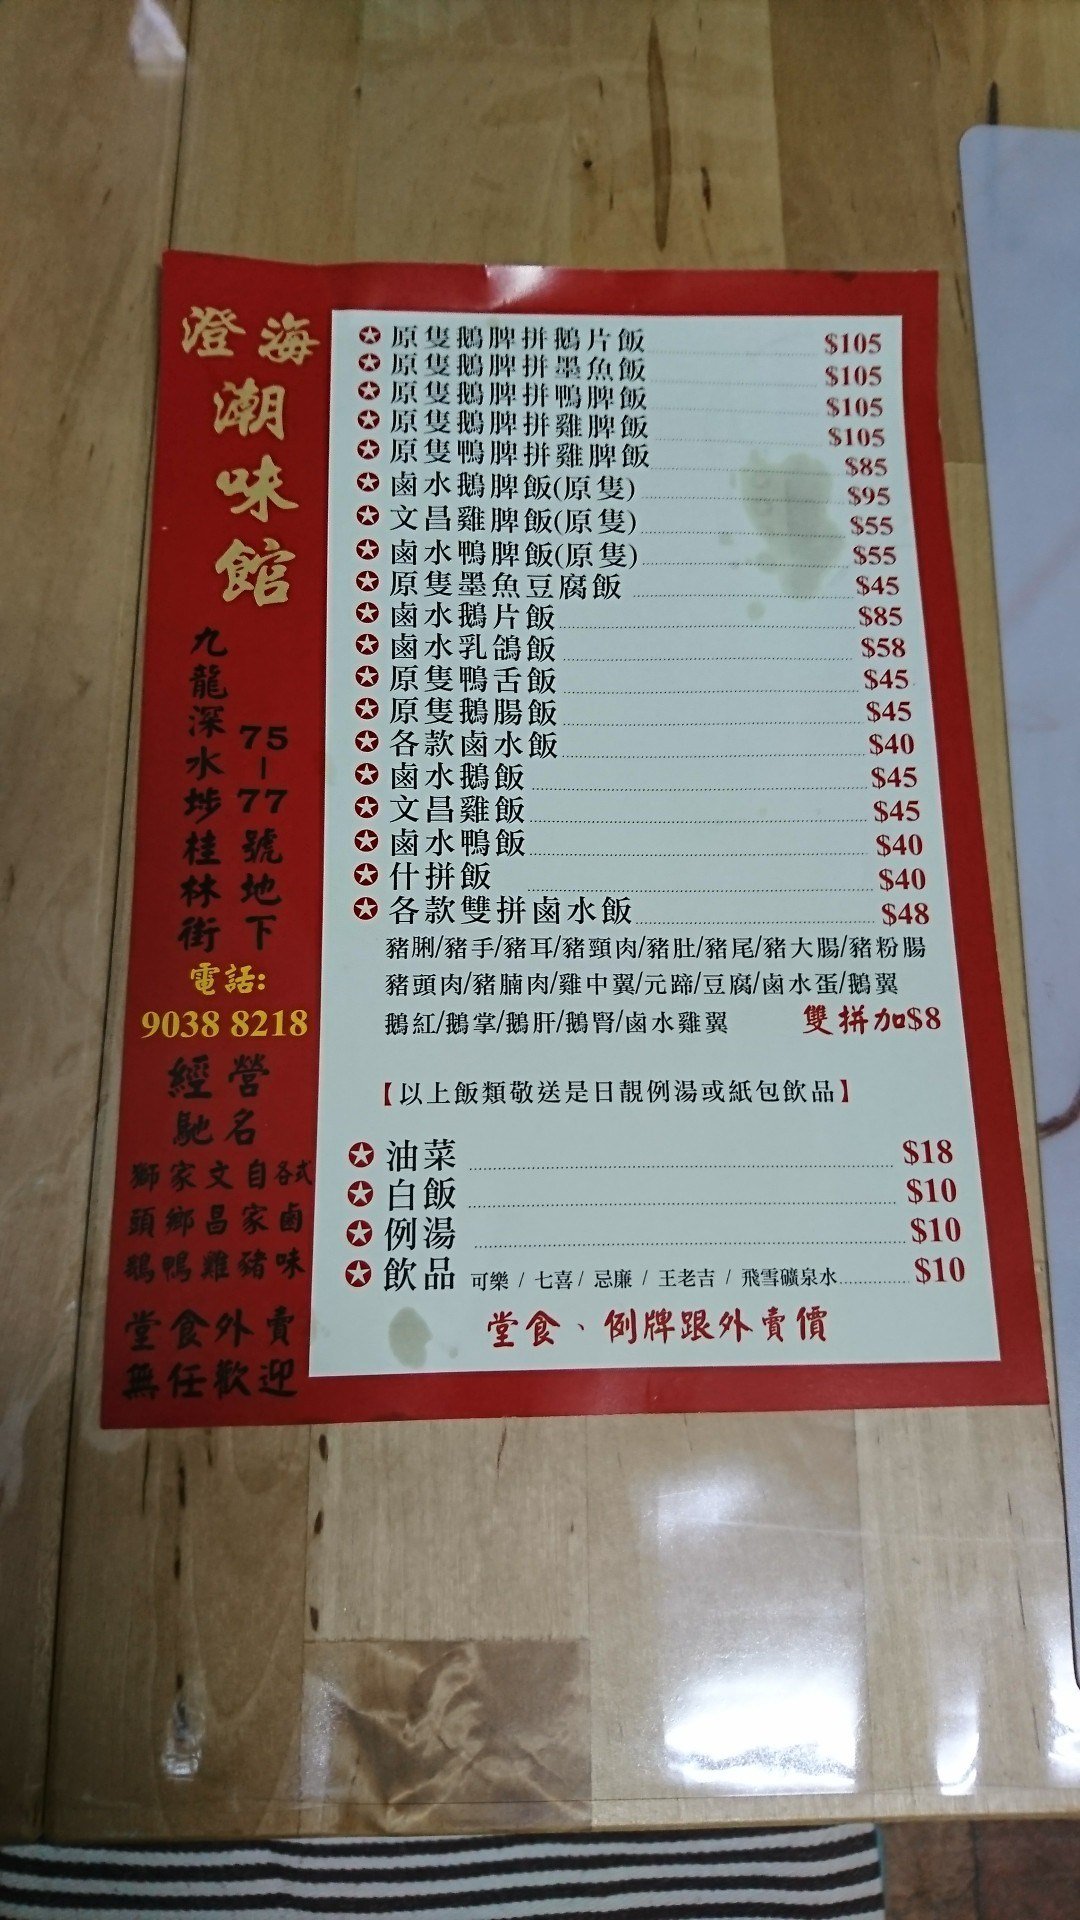 澄海
潮
味
館
九龍深水埗桂林街
75-77號地下
電話:
9038 8218
經營
馳名
獅頭鵝
家鄉鴨
文昌雞
自家豬
各式鹵味
堂食外賣
無任歡迎
✪ 原隻鵝脾拼鵝片飯 $105
✪ 原隻鵝脾拼墨魚飯 $105
✪ 原隻鵝脾拼鴨脾飯 $105
✪ 原隻鵝脾拼雞脾飯 $105
✪ 原隻鴨脾拼雞脾飯 $85
✪ 鹵水鵝脾飯(原隻) $95
✪ 文昌雞脾飯(原隻) $55
✪ 鹵水鴨脾飯(原隻) $55
✪ 原隻墨魚豆腐飯 $45
✪ 鹵水鵝片飯 $85
✪ 鹵水乳鴿飯 $58
✪ 原隻鴨舌飯 $45
✪ 原隻鵝腸飯 $45
✪ 各款鹵水飯 $40
✪ 鹵水鵝飯 $45
✪ 文昌雞飯 $45
✪ 鹵水鴨飯 $40
✪ 什拼飯 $40
✪ 各款雙拼鹵水飯 $48
豬脷/豬手/豬耳/豬頸肉/豬肚/豬尾/豬大腸/豬粉腸
豬頭肉/豬腩肉/雞中翼/元蹄/豆腐/鹵水蛋/鵝翼
鵝紅/鵝掌/鵝肝/鵝腎/鹵水雞翼 雙拼加$8
【以上飯類敬送是日靚例湯或紙包飲品】
✪ 油菜 $18
✪ 白飯 $10
✪ 例湯 $10
✪ 飲品 可樂 / 七喜 / 忌廉 / 王老吉 / 飛雪礦泉水 $10
堂食、例牌跟外賣價